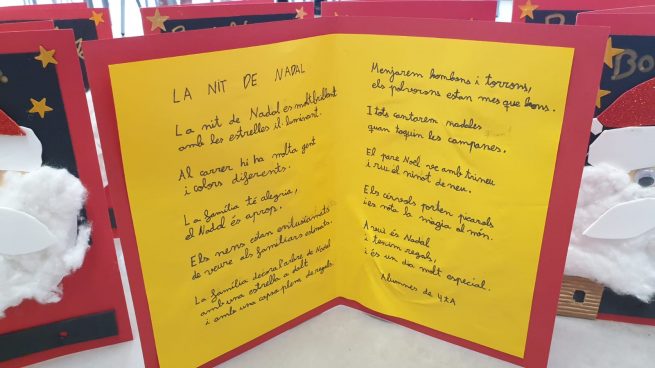 LA NIT DE NADAL
La nit de Nadal es molt brillant
amb les estrelles il·luminant.
Al carrer hi ha molta gent
i colors diferents.
La família té alegria,
el Nadal és aprop.
Els nens estan entusiasmats
de veure als familiars estimats.
La família decora l'arbre de Nadal
amb una estrella a dalt
i amb una capsa plena de regals.
Menjarem bombons i torrons,
els polvorons estan mes que bons.
I tots cantarem nadales
quan toquin les campanes.
El pare Noel ve amb trineu
i riu el ninot de neu.
Els cérvols porten picarols
i es nota la màgia al món.
Avui és Nadal
i tenim regals,
i és un dia molt especial.
Alumnes de 4t A
Bo